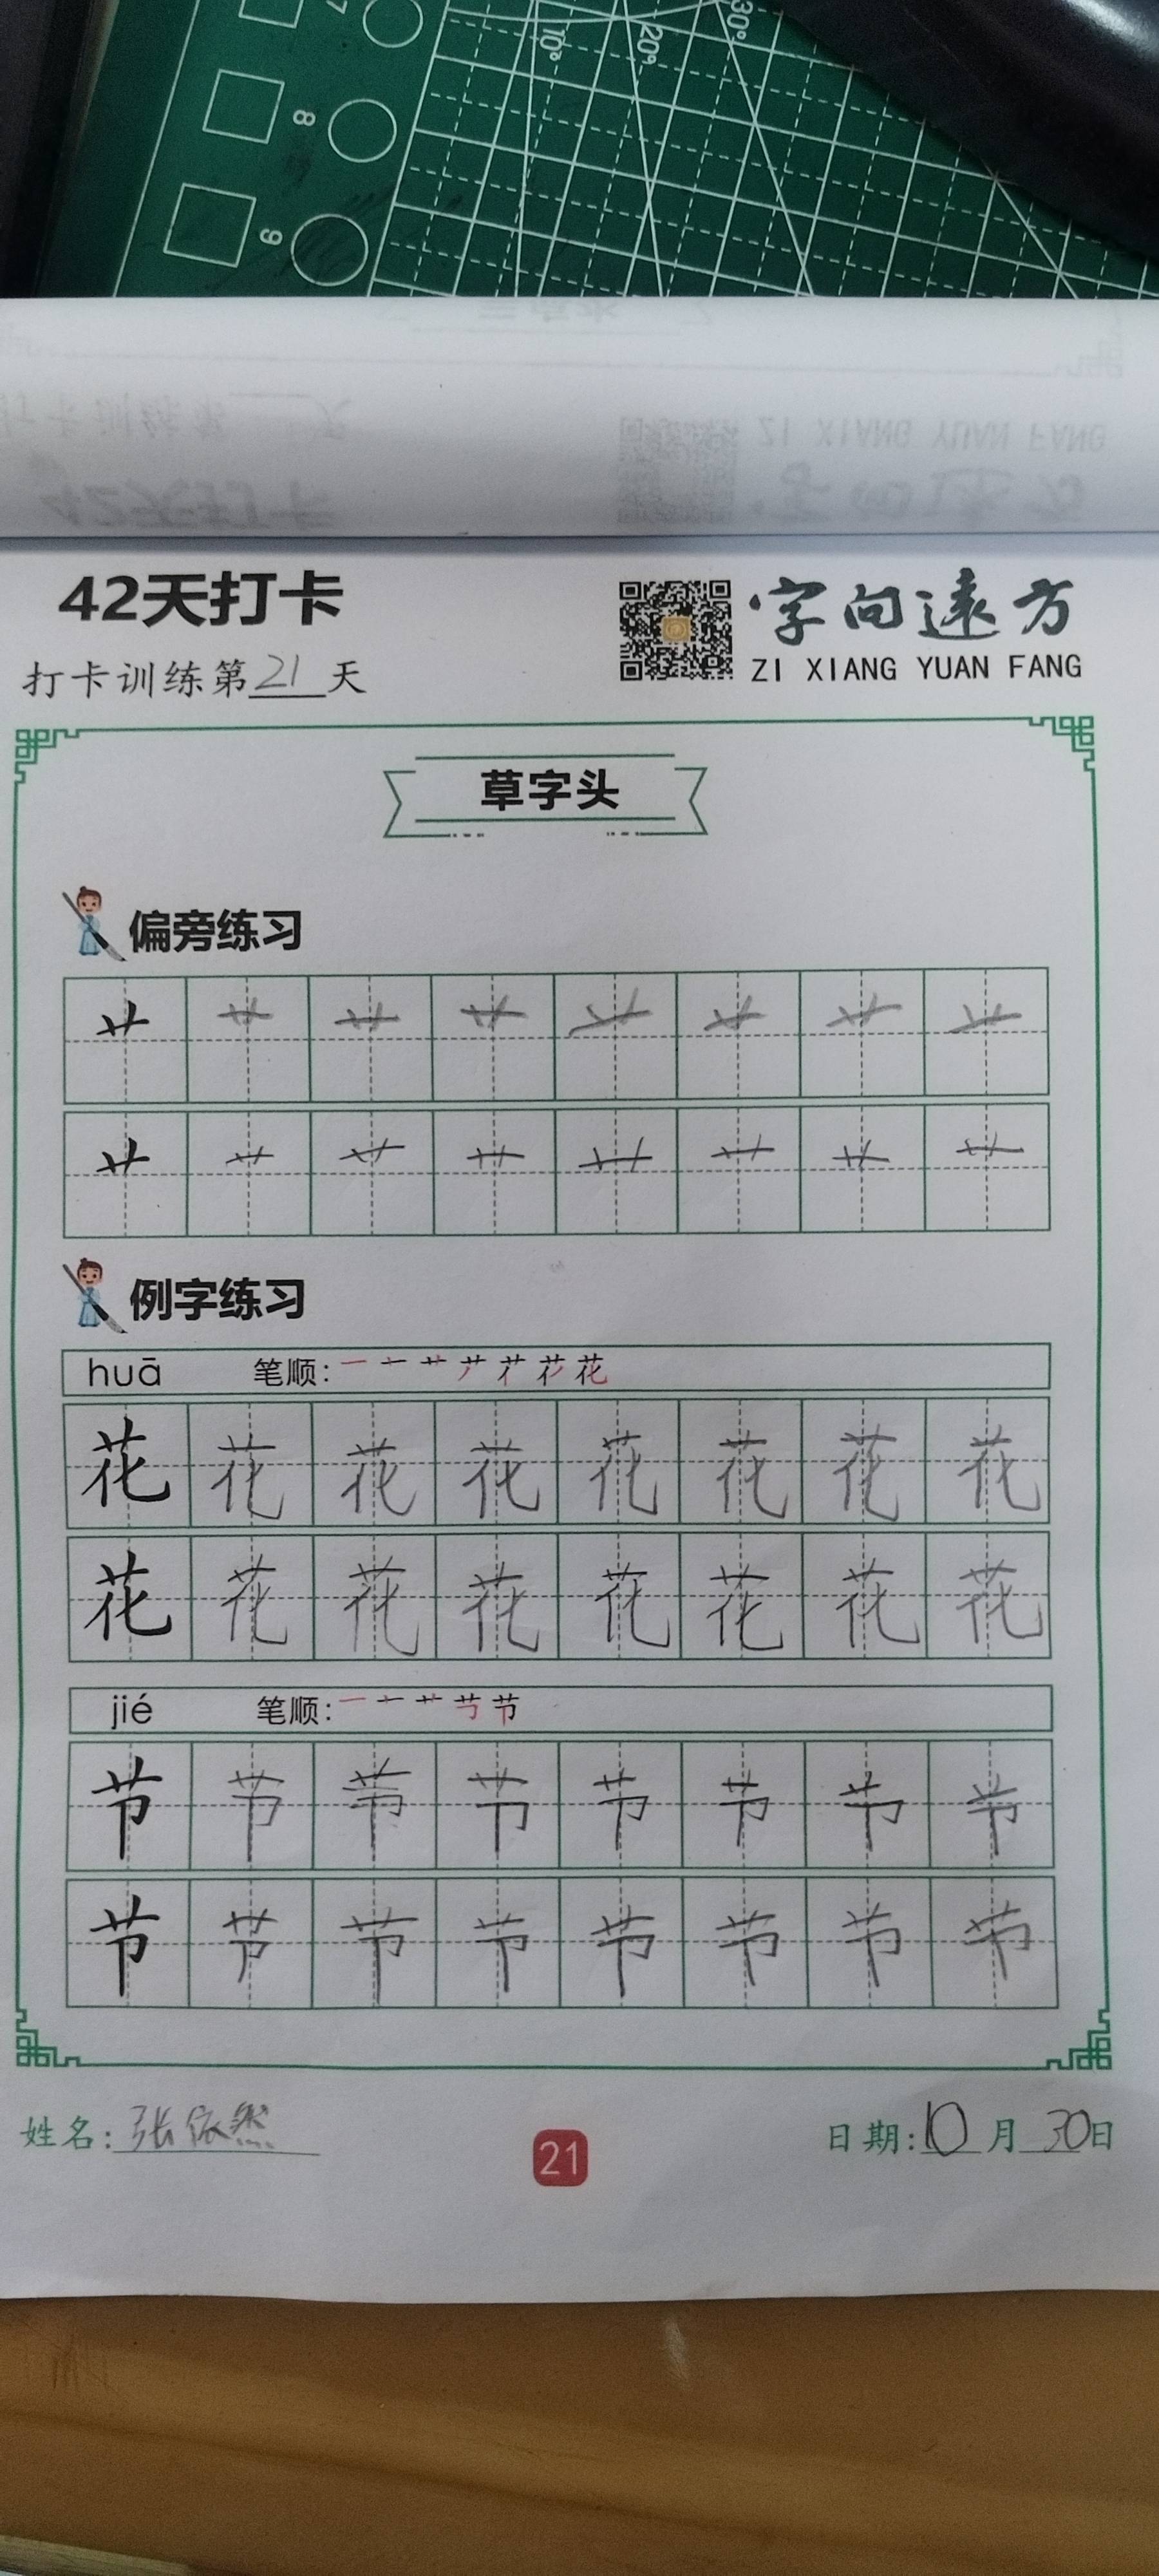 7
8
9
10° 20° 30°
42天打卡
字向遠方
打卡训练第21天
ZI XIANG YUAN FANG
草字头
偏旁练习
艹 艹 艹 艹 艹 艹 艹 艹
艹 艹 艹 艹 艹 艹 艹 艹
例字练习
huā 笔顺:
花 花 花 花 花 花 花 花
花 花 花 花 花 花 花 花
jié 笔顺:
节 节 节 节 节 节 节 节
节 节 节 节 节 节 节 节
姓名:张依然
21
日期:10月30日